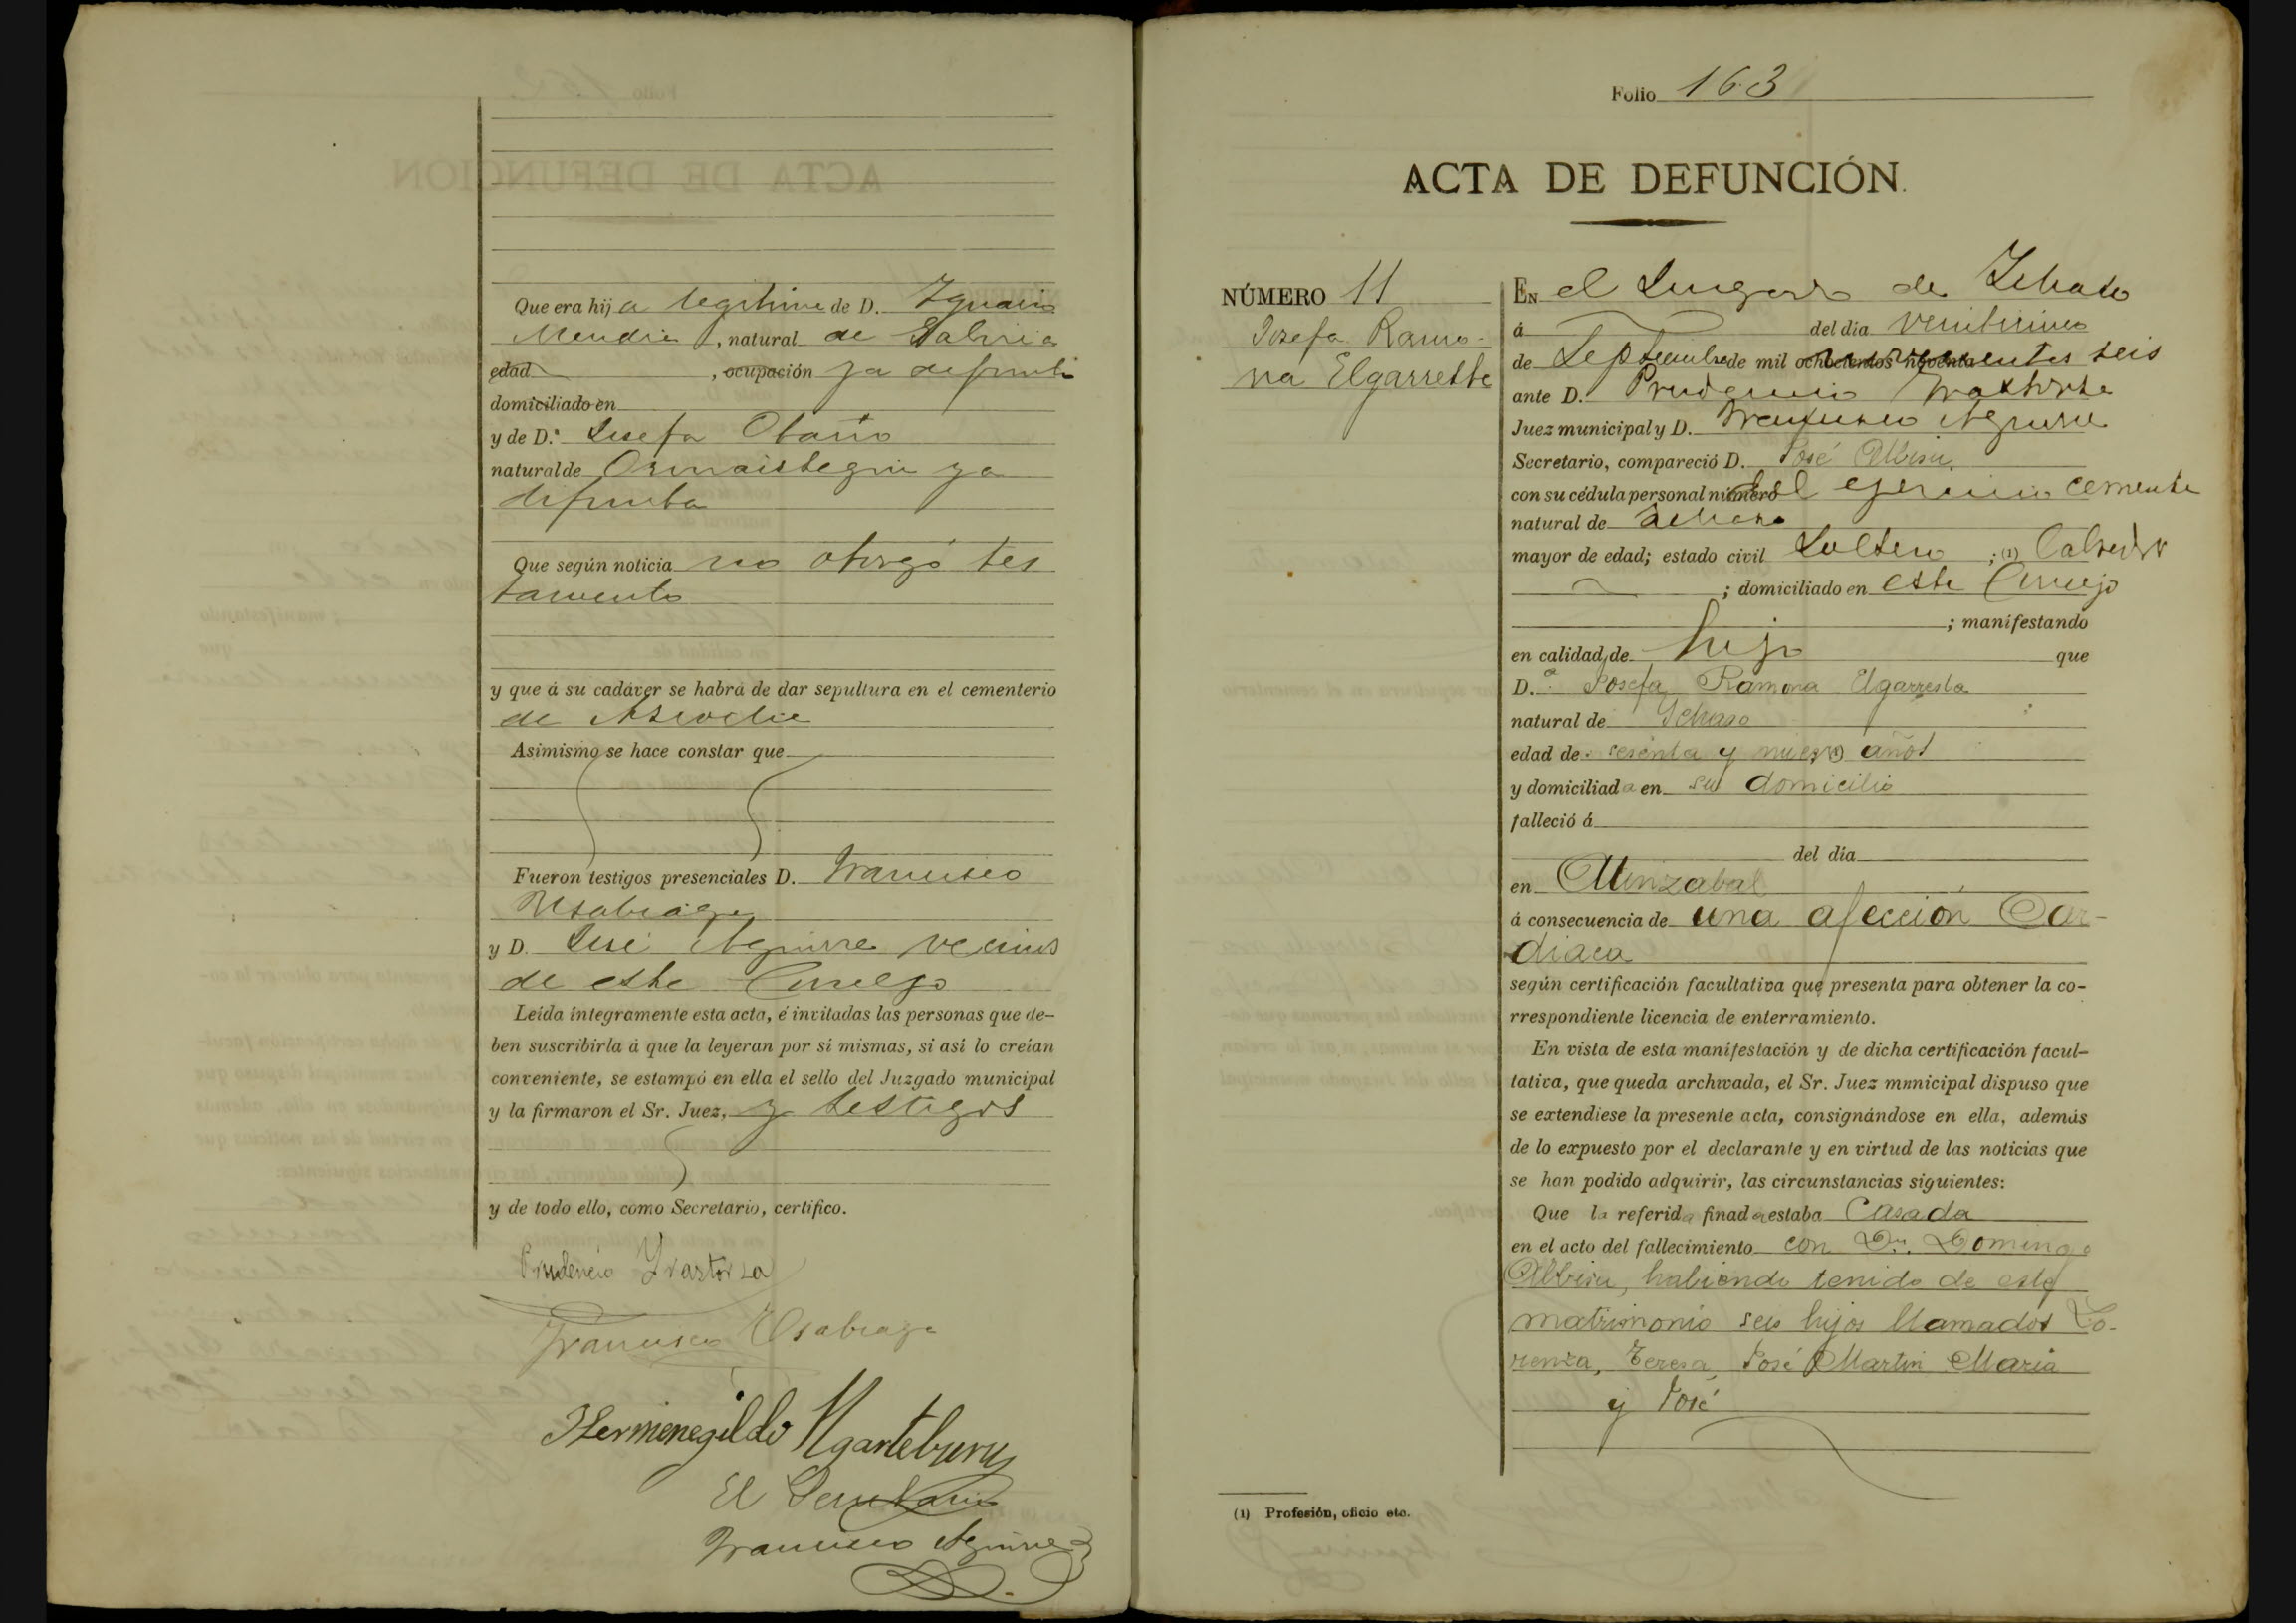 Que era hija legitima de D. Ygnacio
Mendia, natural de Gabiria
edad , ocupación ya difunto
domiciliado en
y de D.ª Josefa Otaño
natural de Ormaistegui ya
difunta
Que según noticia no otorgó tes
tamento
y que á su cadáver se habrá de dar sepultura en el cementerio
de
Asimismo se hace constar que
Fueron testigos presenciales D. Francisco
y D. José Aguirre vecinos
de este Concejo
Leída íntegramente esta acta, é invitadas las personas que de-
ben suscribirla á que la leyeran por sí mismas, si así lo creían
conveniente, se estampó en ella el sello del Juzgado municipal
y la firmaron el Sr. Juez, y testigos
y de todo ello, como Secretario, certifico.
Prudencio Yrastorza
Francisco
Hermenegildo Ugarteburu
El Secretario
Francisco Aguirre
Folio 163
ACTA DE DEFUNCIÓN.
NÚMERO 11
Josefa Ramo-
na Elgarresta
EN el Lugar de Ichaso
á del dia veinticinco
de Septiembre de mil ochocientos noventa novecientos seis
ante D. Prudencio Yrastorza
Juez municipal y D. Francisco Aguirre
Secretario, compareció D. José Albisu
con su cédula personal número del ejercicio corriente
natural de Ichaso
mayor de edad; estado civil Soltero ; (1) Labrador
; domiciliado en este Concejo
; manifestando
en calidad de hijo que
D.ª Josefa Ramona Elgarresta
natural de Ichaso
edad de sesenta y nueve años
y domiciliada en su domicilio
falleció á
del dia
en
á consecuencia de una afección Car-
diaca
según certificación facultativa que presenta para obtener la co-
rrespondiente licencia de enterramiento.
En vista de esta manifestación y de dicha certificación facul-
tativa, que queda archivada, el Sr. Juez municipal dispuso que
se extendiese la presente acta, consignándose en ella, además
de lo expuesto por el declarante y en virtud de las noticias que
se han podido adquirir, las circunstancias siguientes:
Que la referida finada estaba Casada
en el acto del fallecimiento con Dn. Domingo
Albisu, habiendo tenido de este
matrimonio seis hijos llamados Lo-
renza, Teresa, José Martin Maria
y José
(1) Profesión, oficio etc.